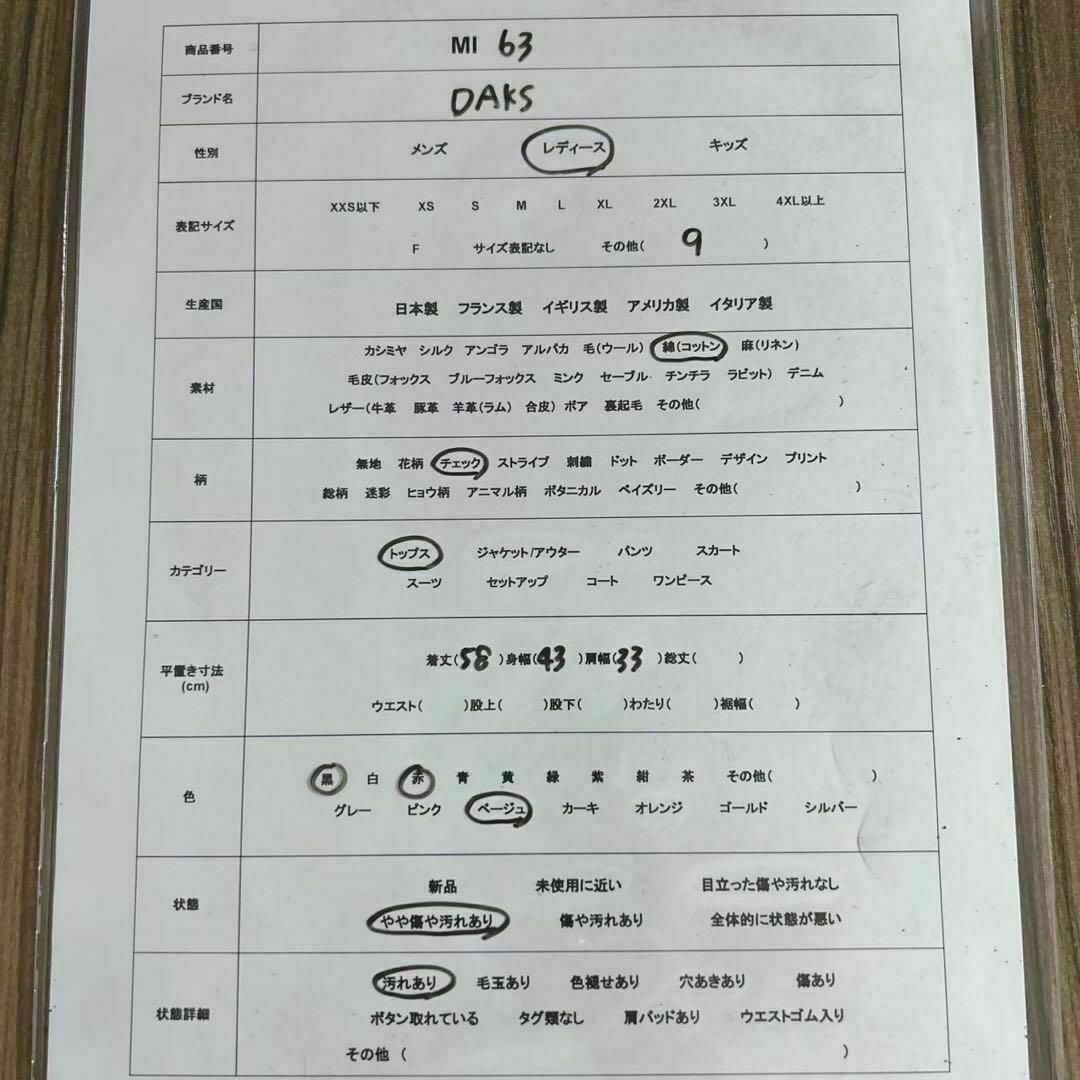 商品番号 MI 63
ブランド名 DAKS
性別 メンズ レディース キッズ
表記サイズ
XXS以下 XS S M L XL 2XL 3XL 4XL以上
F サイズ表記なし その他( 9 )
生産国 日本製 フランス製 イギリス製 アメリカ製 イタリア製
素材
カシミヤ シルク アンゴラ アルパカ 毛(ウール) 綿(コットン) 麻(リネン)
毛皮(フォックス ブルーフォックス ミンク セーブル チンチラ ラビット) デニム
レザー(牛革 豚革 羊革(ラム) 合皮) ボア 裏起毛 その他( )
柄
無地 花柄 チェック ストライプ 刺繍 ドット ボーダー デザイン プリント
総柄 迷彩 ヒョウ柄 アニマル柄 ボタニカル ペイズリー その他( )
カテゴリー
トップス ジャケット/アウター パンツ スカート
スーツ セットアップ コート ワンピース
平置き寸法
(cm)
着丈(58)身幅(43)肩幅(33)総丈( )
ウエスト( )股上( )股下( )わたり( )裾幅( )
色
黒 白 赤 青 黄 緑 紫 紺 茶 その他( )
グレー ピンク ベージュ カーキ オレンジ ゴールド シルバー
状態
新品 未使用に近い 目立った傷や汚れなし
やや傷や汚れあり 傷や汚れあり 全体的に状態が悪い
状態詳細
汚れあり 毛玉あり 色褪せあり 穴あきあり 傷あり
ボタン取れている タグ類なし 肩パッドあり ウエストゴム入り
その他 ( )